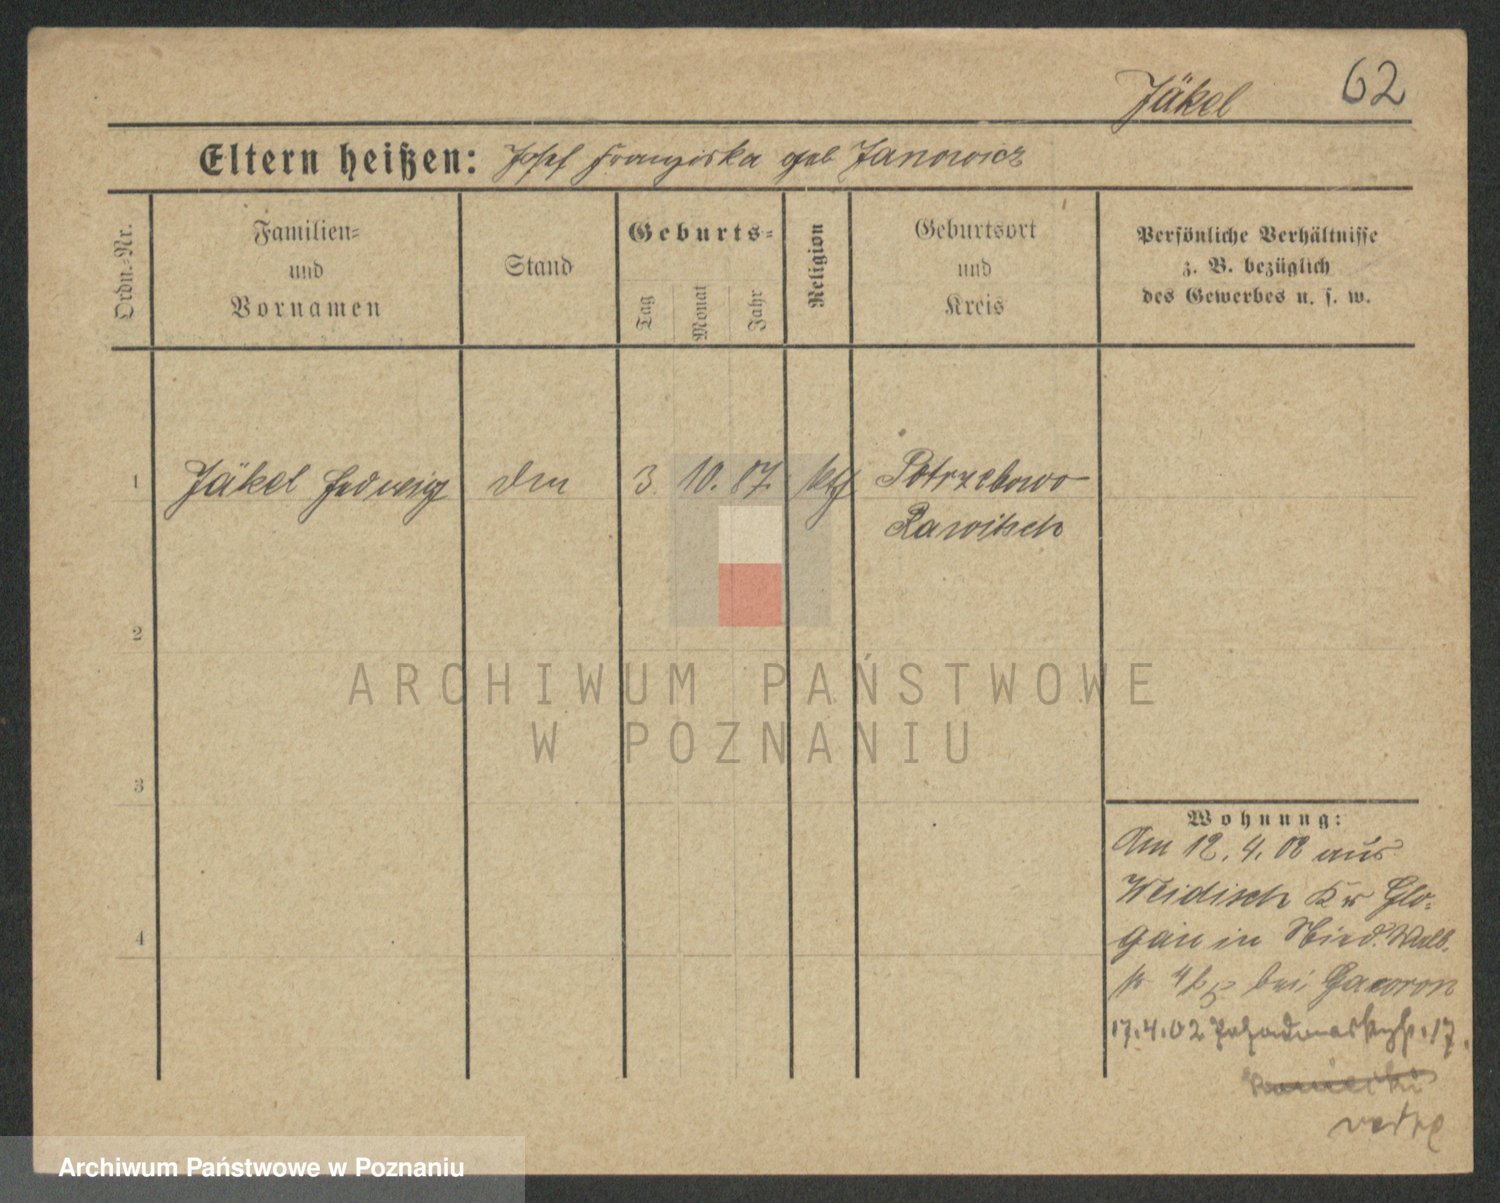 62
Jäkel
Eltern heißen: Josef Franziska geb Janowicz
Ordn.-Nr.
Familien- und Vornamen
Stand
Geburts-
Tag
Monat
Jahr
Religion
Geburtsort und Kreis
Persönliche Verhältnisse
z. B. bezüglich
des Gewerbes u. s. w.
1 Jäkel Hedwig 3. 10. 87. kth Potrzebowo
Rawitsch
2
3
4
Wohnung:
Am 12. 4. 02 aus
Weidisch Kr Glo-
gau in Wall-
bei
17.4.02 17.
ARCHIWUM PAŃSTWOWE
W POZNANIU
Archiwum Państwowe w Poznaniu